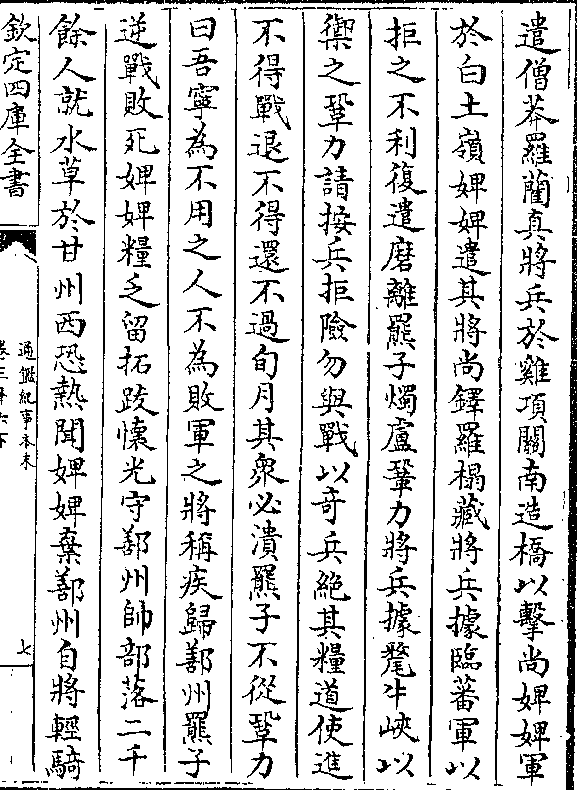 遣僧莽羅藺真將兵於雞項關南造橋以擊尚婢婢軍
於白土嶺婢婢遣其將尚鐸羅榻藏將兵據臨蕃軍以
拒之不利復遣磨離羆子燭盧鞏力將兵據氂牛峽以
禦之鞏力請按兵拒險勿與戰以奇兵絕其糧道使進
不得戰退不得還不過旬月其衆必潰羆子不從鞏力
曰吾寧為不用之人不為敗軍之將稱疾歸鄯州羆子
逆戰敗死婢婢糧乏留拓跋懷光守鄯州帥部落二千
餘人就水草於甘州西恐熱聞婢婢棄鄯州自將輕騎
欽定四庫全書
通鑑紀事本末
七